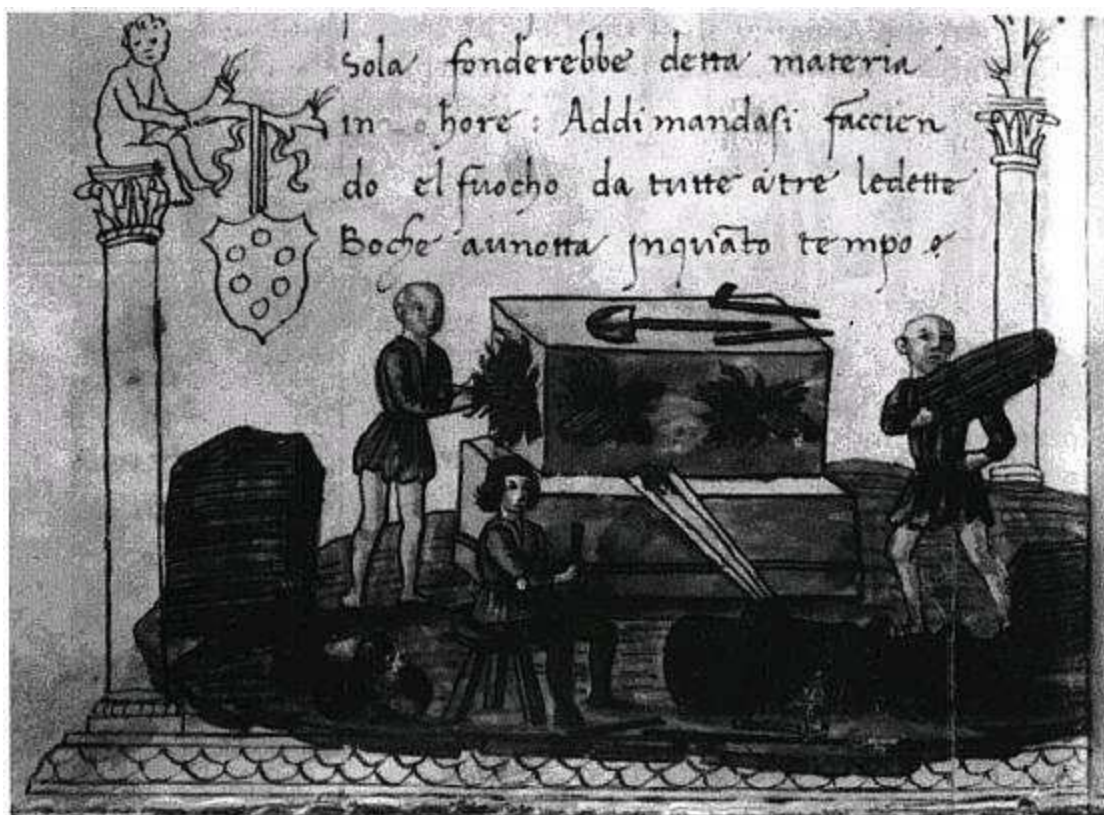 sola fonderebbe detta materia
in hore : Addimandasi faccien
do el fuocho da tutte atre ledette
Boche aunotta inquāto tempo